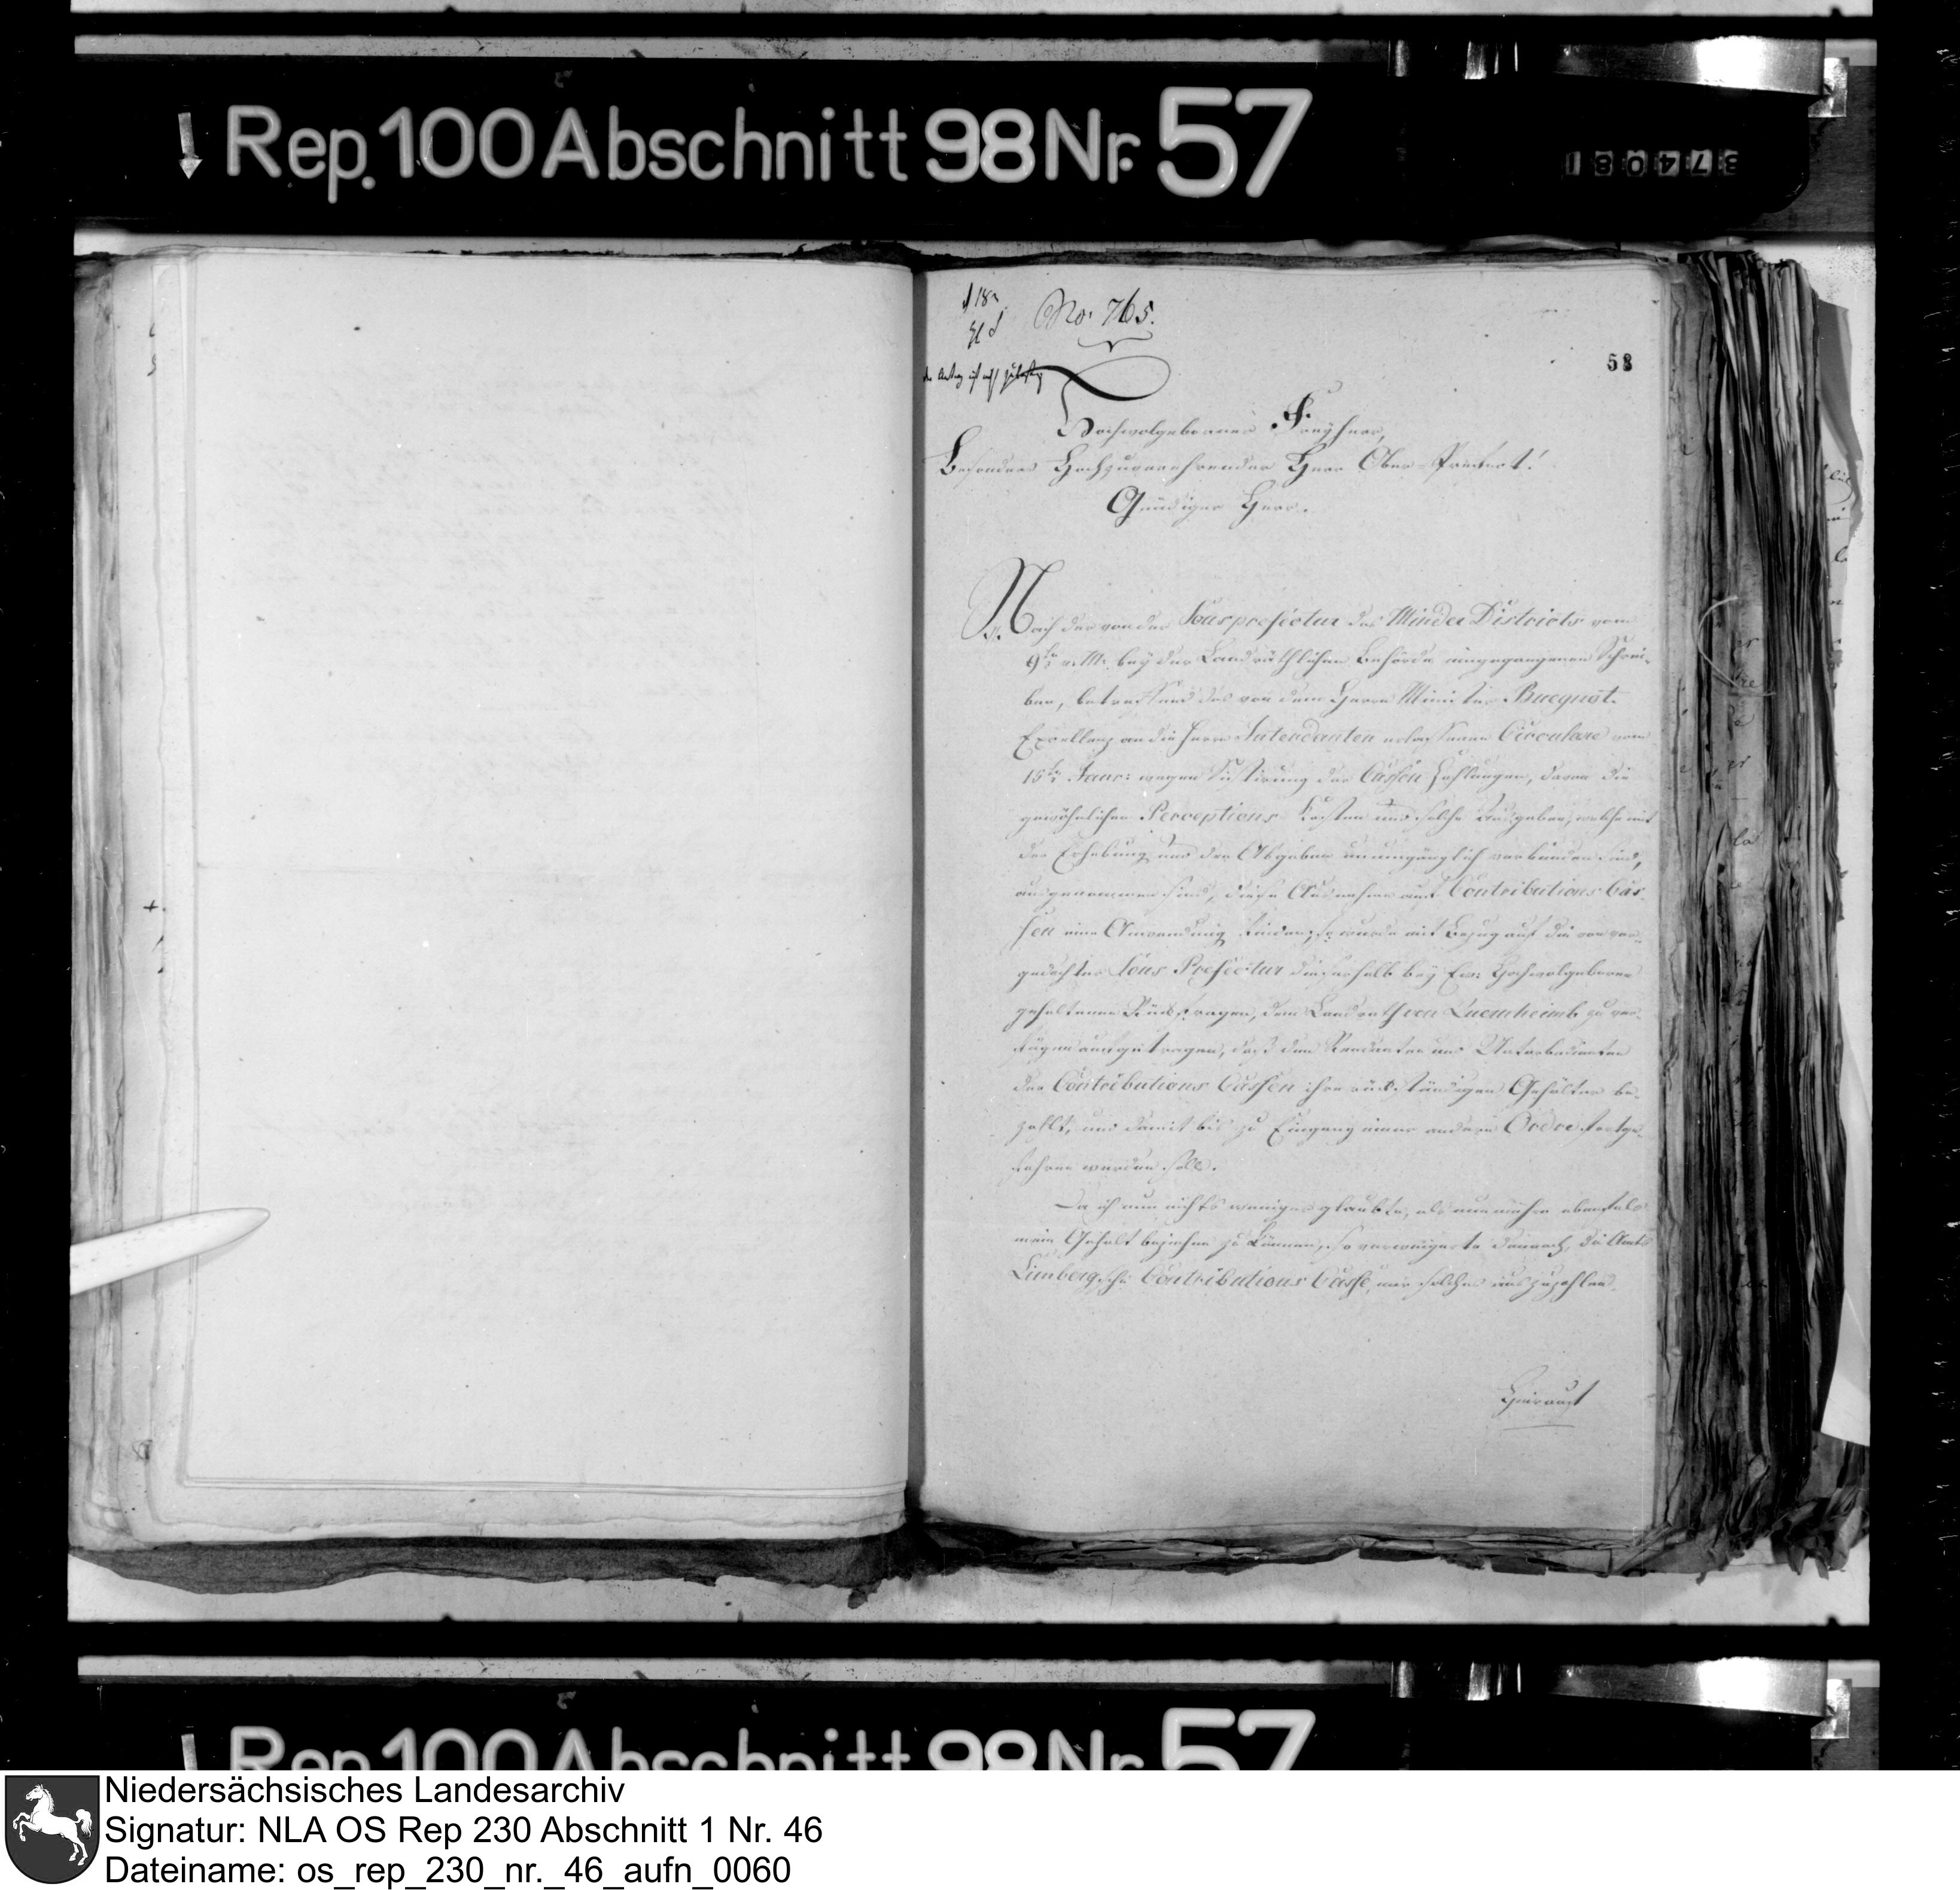 Rep. 100 Abschnitt 98 Nr. 57
374081
No. 765.
58
der Antrag ist nicht zuläßig
Hochwolgeborner Freyherr,
Besonders Hochzuverehrender Herr Ober-Präfect!
Gnädiger Herr.
Nach der von der Souspréfectur des Minder Districts vom
9ten v. M. bey der Landräthlichen Behörde eingegangenen Schrei-
ben, betreffend das von dem Herrn Minister Buegnot
Excellenz an die Herrn Intendanten erlassene Circulare vom
15ten Janr: wegen Sistirung der Cassen Zahlungen, davon die
gewöhnlichen Perceptions Kosten und solche Ausgaben, welche mit
der Erhebung und den Abgaben unumgänglich verbunden sind,
ausgenommen sind, diese Ausnahme auf Contributions Cas-
sen eine Anwendung finden; so wurde mit Bezug auf die von vor-
gedachter Sous Prefectur dieserhalb bey Ew: Hochwolgeboren
gehaltenen Rückfragen, dem Landrath von zu ver-
fügen aufgetragen, daß den Rendanten und Unterbedienten
der Contributions Cassen ihre rückständigen Gehälter be-
zahlt, und damit bis zu Eingang einer andern Ordre fortge-
fahren werden solle.
Da ich nun nichts weniger glaubte, als nunmehro ebenfals
mein Gehalt beziehen zu können, so verweigerte dennoch, die Amt
Limbergsche Contributions Casse, mir solches auszuzahlen.
Hierauf
Rep. 100 Abschnitt 98 Nr. 57
Niedersächsisches Landesarchiv
Signatur: NLA OS Rep 230 Abschnitt 1 Nr. 46
Dateiname: os_rep_230_nr._46_aufn_0060